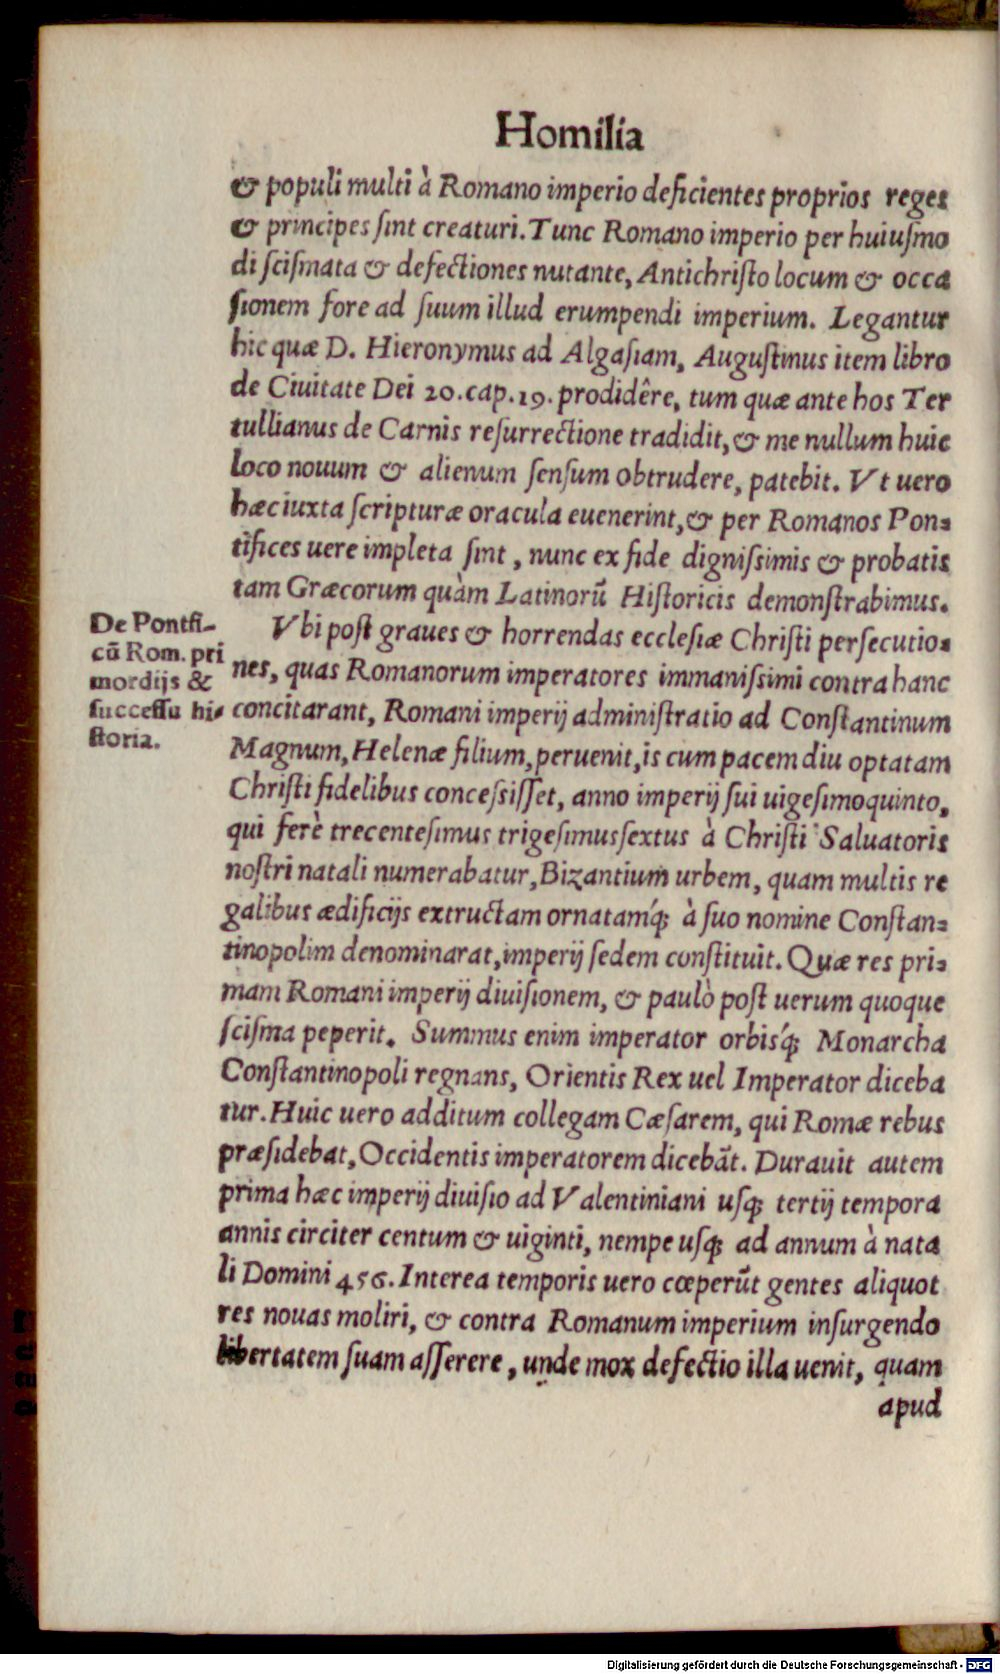 Homilia
& populi multi à Romano imperio deficientes proprios reges
& principes ſint creaturi. Tunc Romano imperio per huiuſmo
di ſciſmata & defectiones nutante, Antichriſto locum & occa
ſionem fore ad ſuum illud erumpendi imperium. Legantur
hic quæ D. Hieronymus ad Algaſiam, Auguſtinus item libro
de Ciuitate Dei 20. cap. 19. prodidêre, tum quæ ante hos Ter
tullianus de Carnis reſurrectione tradidit, & me nullum huic
loco nouum & alienum ſenſum obtrudere, patebit. Vt uero
hæc iuxta ſcripturæ oracula euenerint, & per Romanos Pon⸗
tifices uere impleta ſint, nunc ex fide digniſsimis & probatis
tam Græcorum quàm Latinorũ Hiſtoricis demonſtrabimus.
De Pontifi⸗
cũ Rom. pri
mordijs &
ſucceſſu hi⸗
ſtoria.
Vbi poſt graues & horrendas eccleſiæ Chriſti perſecutio⸗
nes, quas Romanorum imperatores immaniſsimi contra hanc
concitarant, Romani imperij adminiſtratio ad Conſtantinum
Magnum, Helenæ filium, peruenit, is cum pacem diu optatam
Chriſti fidelibus conceſsiſſet, anno imperij ſui uigeſimoquinto,
qui ferè trecenteſimus trigeſimusſextus à Chriſti Saluatoris
noſtri natali numerabatur, Bizantium urbem, quam multis re
galibus ædificijs extructam ornatamq́ue à ſuo nomine Conſtan⸗
tinopolim denominarat, imperij ſedem conſtituit. Quæ res pri⸗
mam Romani imperij diuiſionem, & paulò poſt uerum quoque
ſciſma peperit. Summus enim imperator orbisq́ꝫ Monarcha
Conſtantinopoli regnans, Orientis Rex uel Imperator diceba
tur. Huic uero additum collegam Cæſarem, qui Romæ rebus
præſidebat, Occidentis imperatorem dicebãt. Durauit autem
prima hæc imperij diuiſio ad Valentiniani uſqꝫ tertij tempora
annis circiter centum & uiginti, nempe uſqꝫ ad annum à nata
li Domini 456. Interea temporis uero cœperũt gentes aliquot
res nouas moliri, & contra Romanum imperium inſurgendo
libertatem ſuam aſſerere, unde mox defectio illa uenit, quam
apud
Digitalisierung gefördert durch die Deutsche Forschungsgemeinschaft - DFG